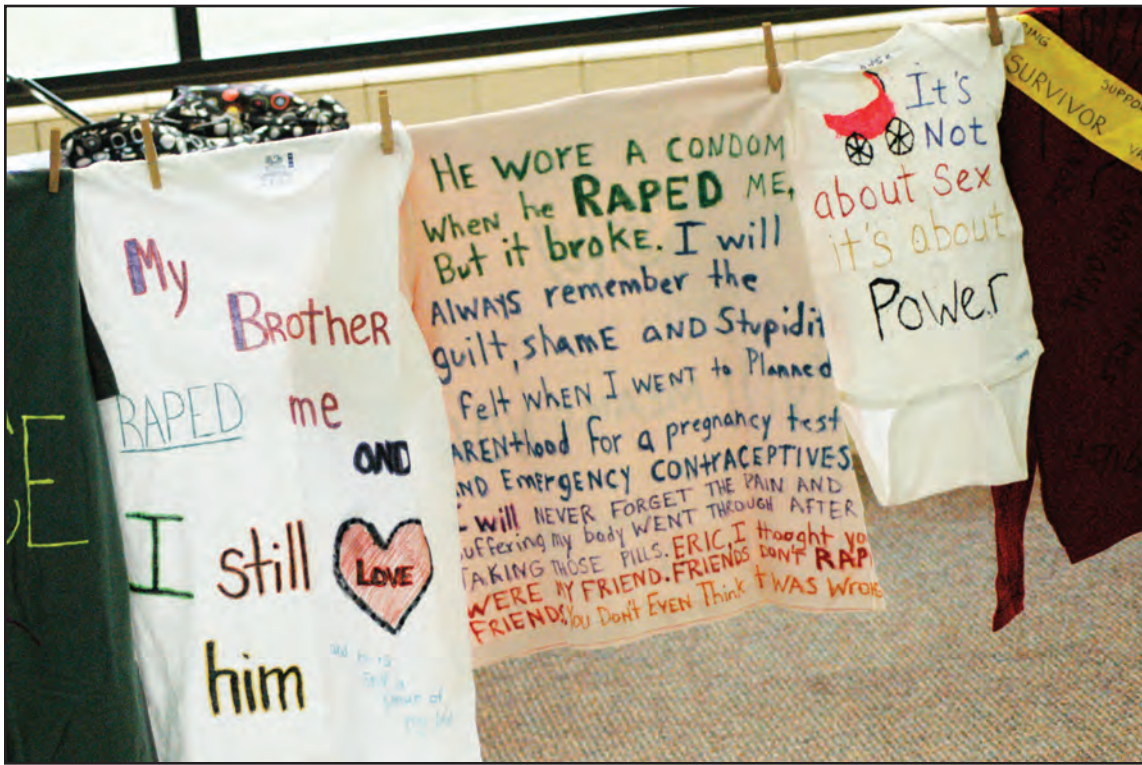 My
Brother
RAPED me
AND
I still LOVE
him
HE WORE A CONDOM
When he RAPED ME,
But it broke. I will
ALWAYS remember the
guilt, shame AND Stupidit
felt WHEN I WENT to Planned
ARENthood for a pregnancy test
ND EmErgENCY CONtRACEPTIVES
I will NEVER FORGET THE PAIN AND
uffering my body WENT THROUGH AFTER
TAKING THOSE PILLS. ERIC, I thought yo
WERE MY FRIEND. FRIENDS DON'T RAP
FRIENDS. You DON'T EVEN Think t WAS WRONG
It's
Not
about Sex
it's about
Power
SURVIVOR
SUPPO